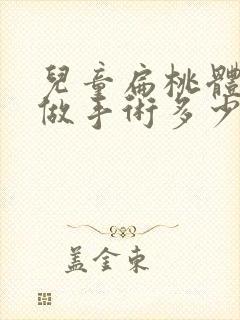 兒童扁桃體
做手術多少
盖金東